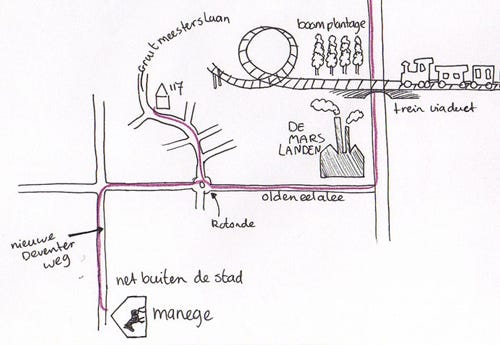 Gruitmeesterslaan
boomplantage
117
trein viaduct
DE
MARS
LANDEN
oldeneelalee
Rotonde
nieuwe
Deventer
weg
net buiten de stad
manege